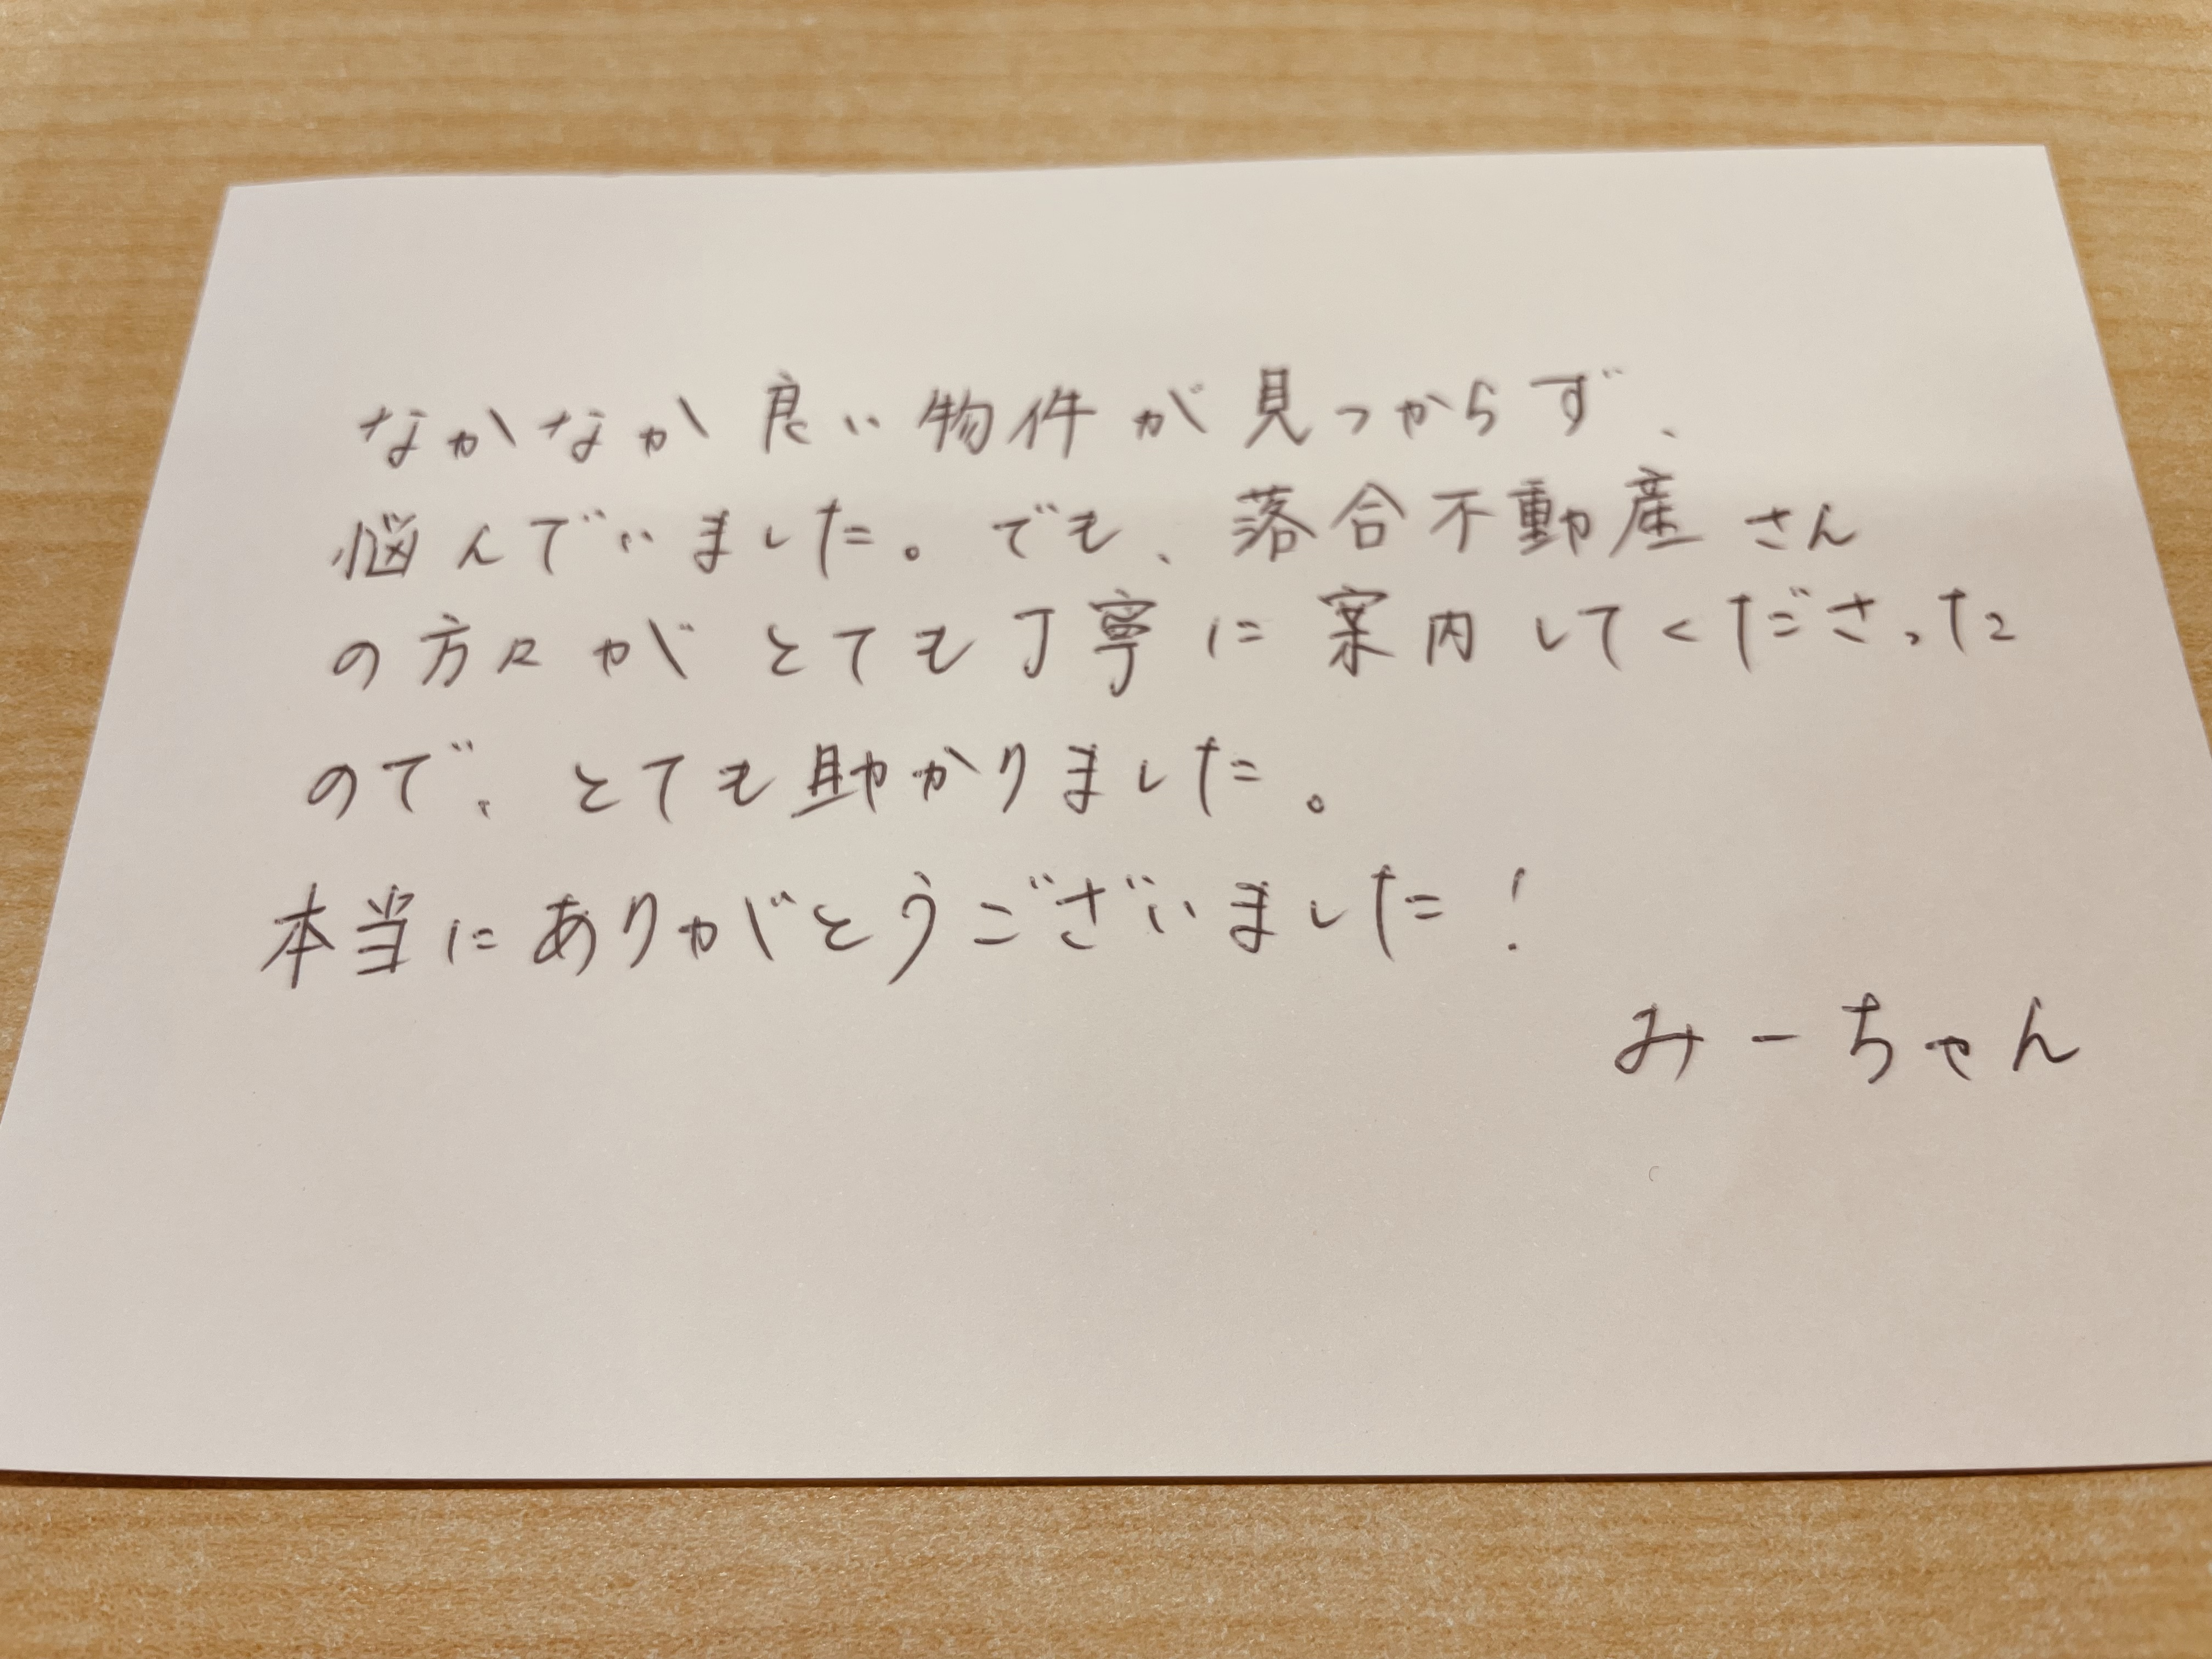 なかなか良い物件が見つからず、
悩んでいました。でも、落合不動産さん
の方々がとても丁寧に案内してくださった
ので、とても助かりました。
本当にありがとうございました!
みーちゃん